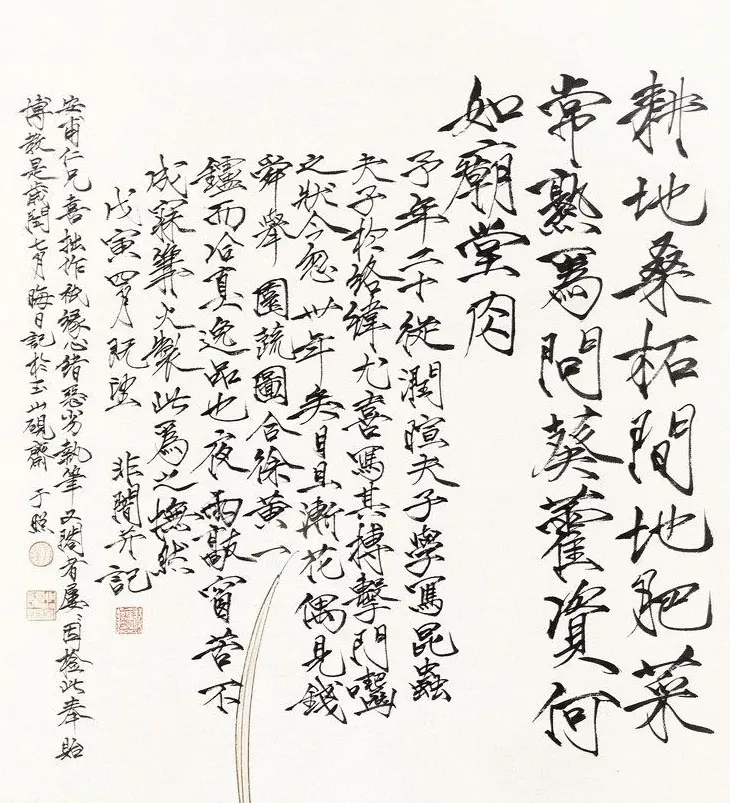 耕地桑柘間地肥菜
常熟為問葵藿資何
如廟堂肉
予年二十從潤暄夫子學寫昆蟲
夫子於絡緯尤喜寫其搏擊鬥嚙
之狀今忽卅年矣目且漸花偶見錢
舜舉園蔬圖合徐黃一
鑪而冶真逸品也夜雨敲窗苦不
成寐篝火製此為之憮然
戊寅四月既望 非闇并記
安甫仁兄喜拙作衹緣心緒惡劣執筆又閣者屢因撿此奉貽
博教是歲閏七月晦日記於玉山硯齋 于照